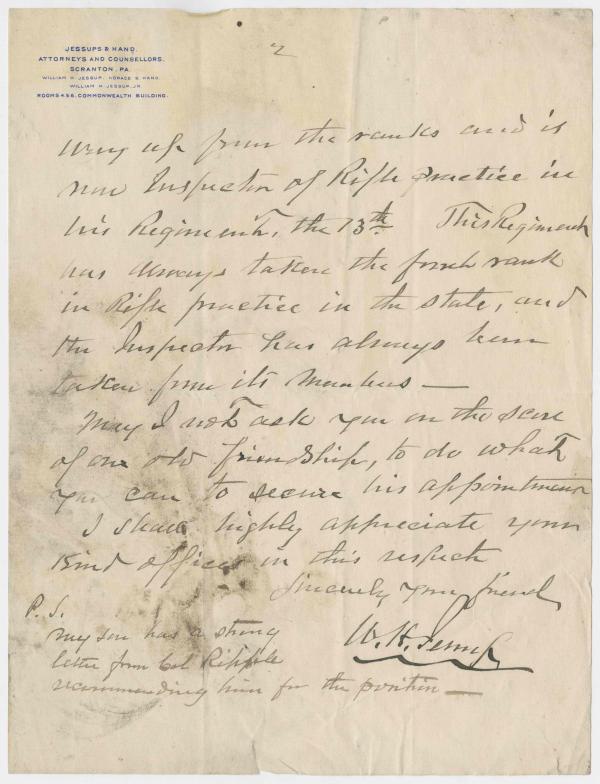 JESSUPS & HAND,
ATTORNEYS AND COUNSELLORS,
SCRANTON, PA.
WILLIAM H. JESSUP, HORACE E. HAND,
WILLIAM H. JESSUP, JR.
ROOMS 4,5,6, COMMONWEALTH BUILDING.
2
way up from the ranks and is
now Inspector of Rifle practice in
his Regiment, the 13th This Regiment
has always taken the front rank
in Rifle practice in the state, and
the Inspector has always been
taken from its Members —
May I not ask you on the score
of our old friendship, to do what
you can to secure his appointment
I shall highly appreciate your
kind offices in this respect
Sincerely your friend
W. H. Jessup
P. S.
My son has a strong
letter from Col Ripple
recommending him for the position —